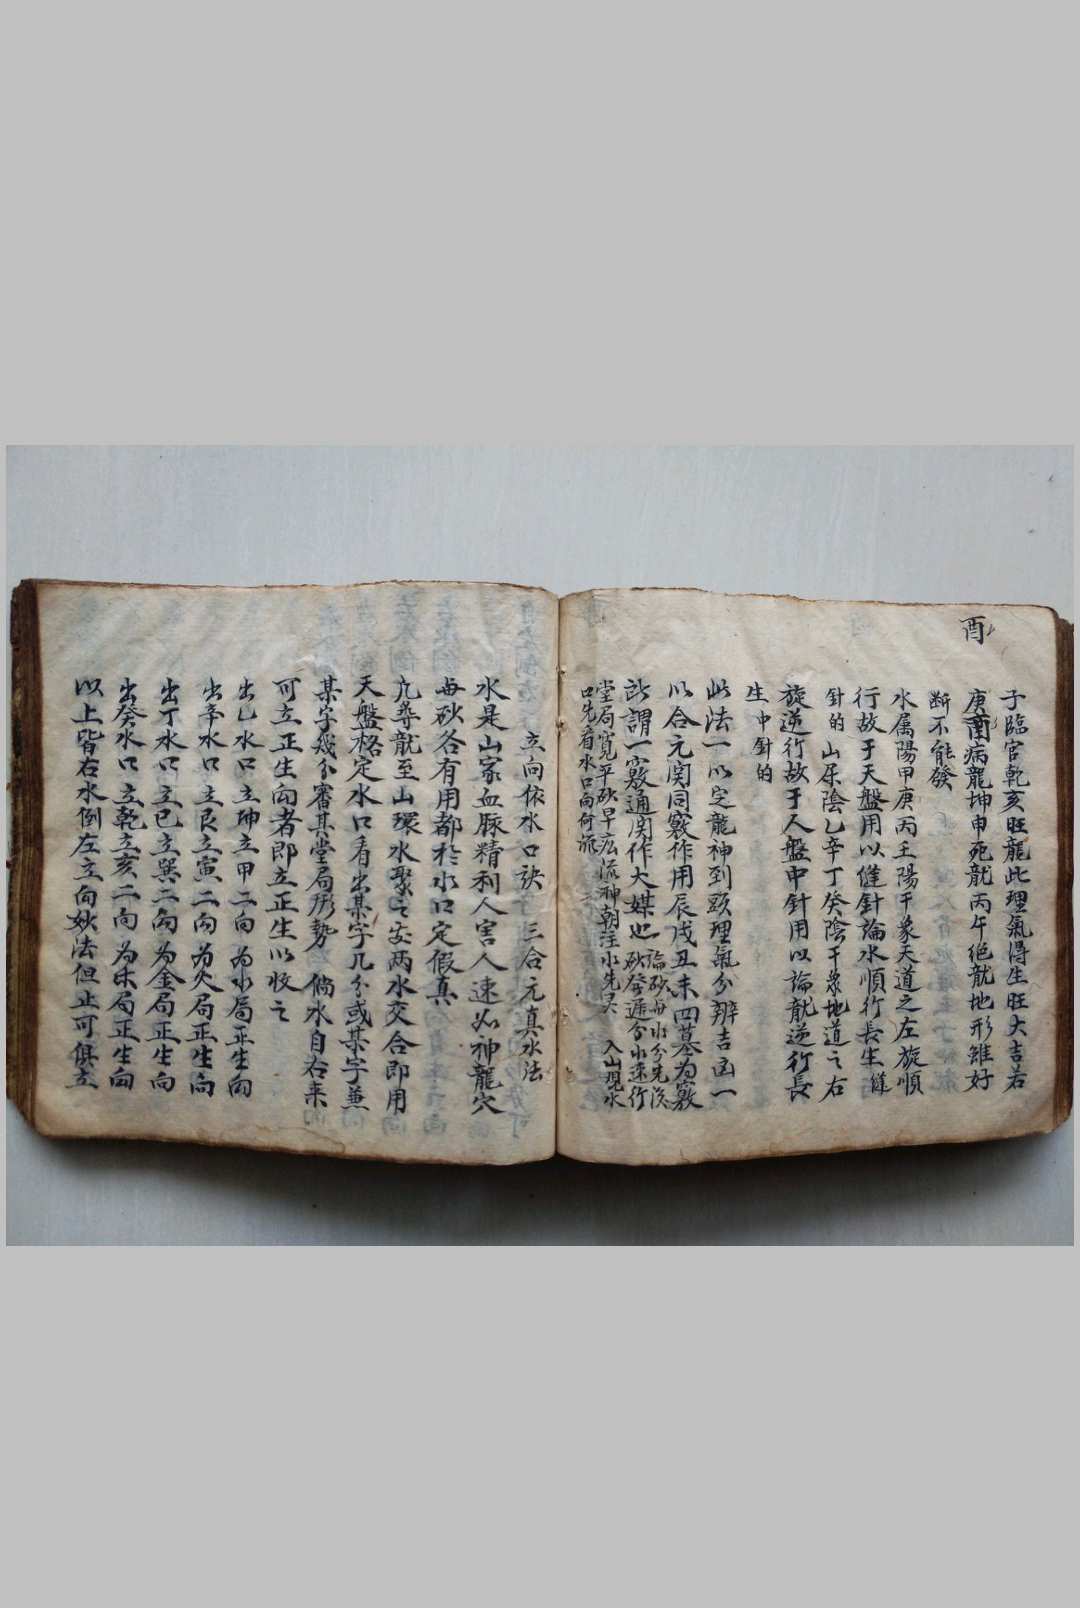 酉
子臨官乾亥旺龍此理氣得生旺大吉若
庚病龍坤申死龍丙午绝龍地形雖好
断不能發
水属陽甲庚丙壬陽干象天道之左旋順
行故于天盤用以縫針論水順行長生縫
針的山属陰乙辛丁癸陰干象地道之右
旋逆行故于人盤中針用以論龍逆行長
生中針的
此法一以定龍神到頭理氣分辨吉凶一
以合元関同竅作用辰戌丑未四墓为竅
此謂一竅通関作大媒也論砂每水分先後
砂發遲分水速行
堂局寬平砂早広流神朝注水先灵入山現水
口先看水口向何派
立向依水口訣三合元真水法
水是山家血脉精利人害人速如神龍穴
每砂各有用都於水口定假真
凢尋龍至山環水聚之安两水交合即用
天盤格定水口看出某字几分或某字兼
某字幾分審其堂局形勢倘水自右来
可立正生向者即立正生以收之
出乙水口立坤立申二向为水局正生向
出辛水口立艮立寅二向为火局正生向
出丁水口立巳立巽二向为金局正生向
出癸水口立乾立亥二向为木局正生向
以上皆右水倒左立向妙法但止可俱立